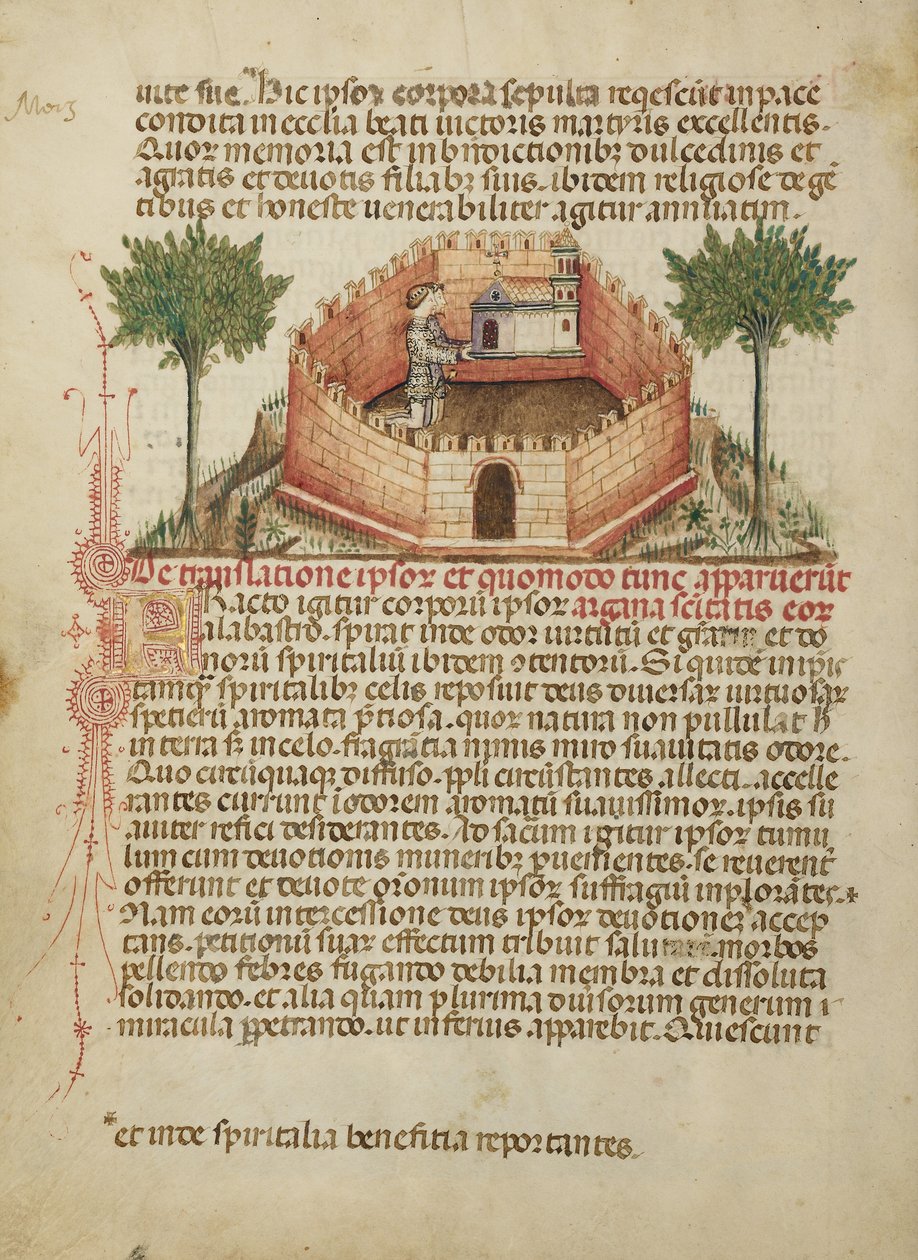 Morz
uite sue. Hic ipsoꝝ corpora sepulta reqescūt in pace
condita in ecclīa beati uictoris martyris excellentis.
Quoꝝ memoria est in bn̄dictionibꝫ dulcedinis et
agratis et deuotis filiabꝫ suis. ibidem religiose dege
tibus et honeste uenerabiliter agitur annuatim.
De translatione ipsoꝝ et quomodo tunc apparuerūt
Facto igitur corporū ipsoꝝ argana sc̄itatis eoꝝ
alabastrō. spirat inde odor uirtutū et gr̄arum et do
norū spiritaliū ibidem ꝯtentorū. Siquidē in ip̄is
tamqꝫ spiritalibꝫ celis reposuit deus diuersaꝝ uirtuosaꝝ
spetierū aromata p̄tiosa. quoꝝ natura non pullulat h̄
in terra sꝫ in celo. fragrātia nimis miro suauitatis odore.
Quo circūquaqꝫ diffuso. ppl̄i circūstantes allecti. accelle
rantes currunt ī odorem aromatū suauissimoꝝ. ipsis su
auiter refici desiderantes. Ad sacrum igitur ipsoꝝ tumu
lum cum deuotionis muneribꝫ ꝑuenientes. se reuerent̄
offerunt et deuote or̄onum ipsoꝝ suffragiū inplorātes.
Nam eorū intercessione deus ipsoꝝ deuotionēꝫ accep
tans. petitionū suaꝝ effectum tribuit salutarē. morbos
pellendo febres fugando debilia membra et dissoluta
solidando. et alia quam plurima diuīsorum generum
miracula ꝑpetrando. ut inferius apparebit. Quiescunt
et inde spiritalia benefitia reportantes.